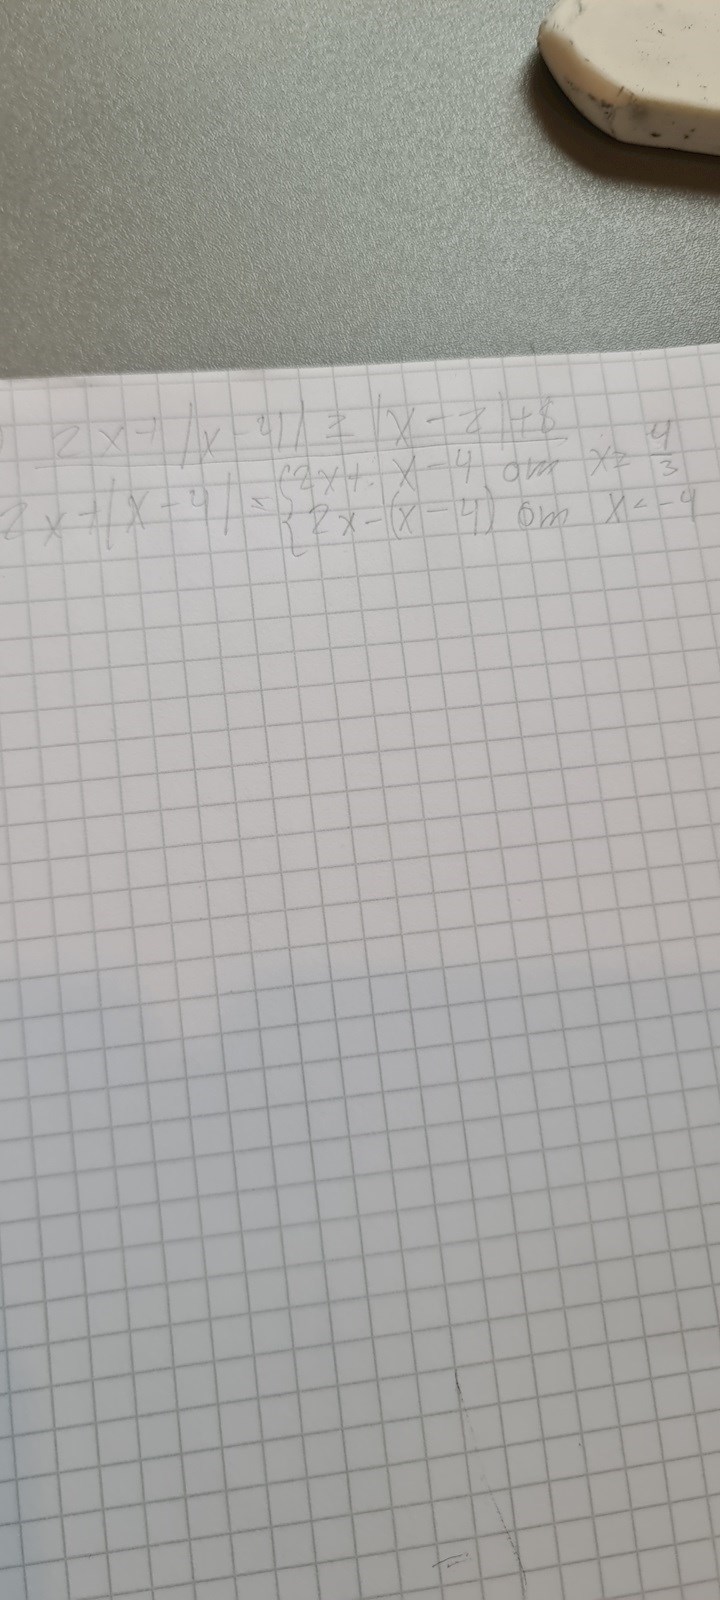 ) 2x+ |x-4| ≥ |x-2|+8
2x+|x-4| = {2x+ x-4 om x≥ 4/3
{2x-(x-4) om x<-4